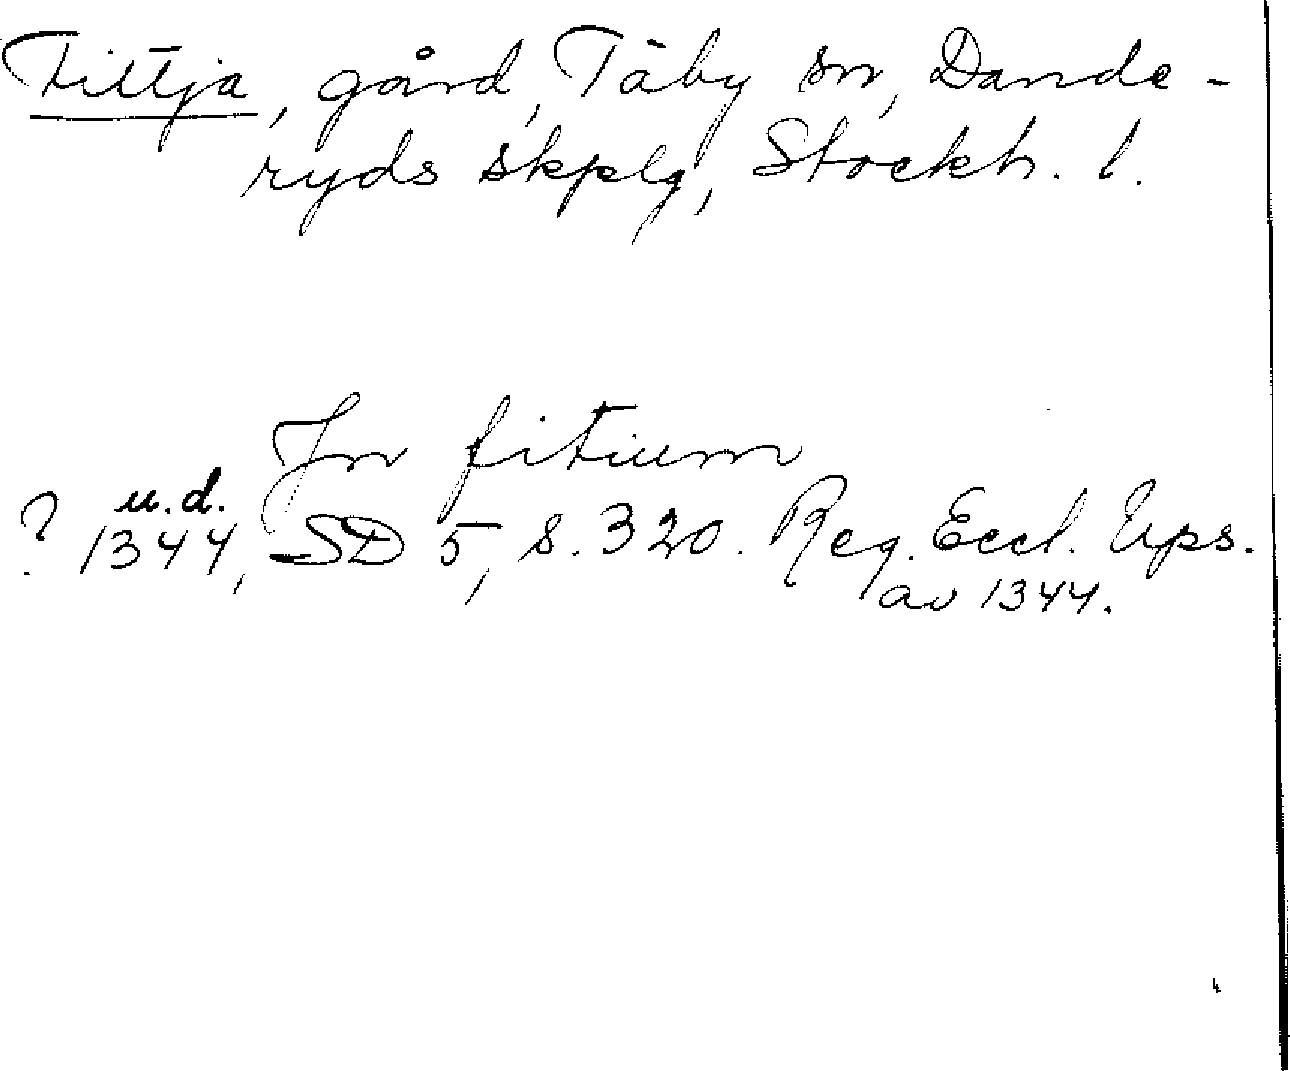 Fittja, gård, Täby sn, Dande-
ryds skplg, Stockh. l.
In fitium
? u.d. 1344, SD 5, s. 320. Reg. Eccl. Ups.
av 1344.